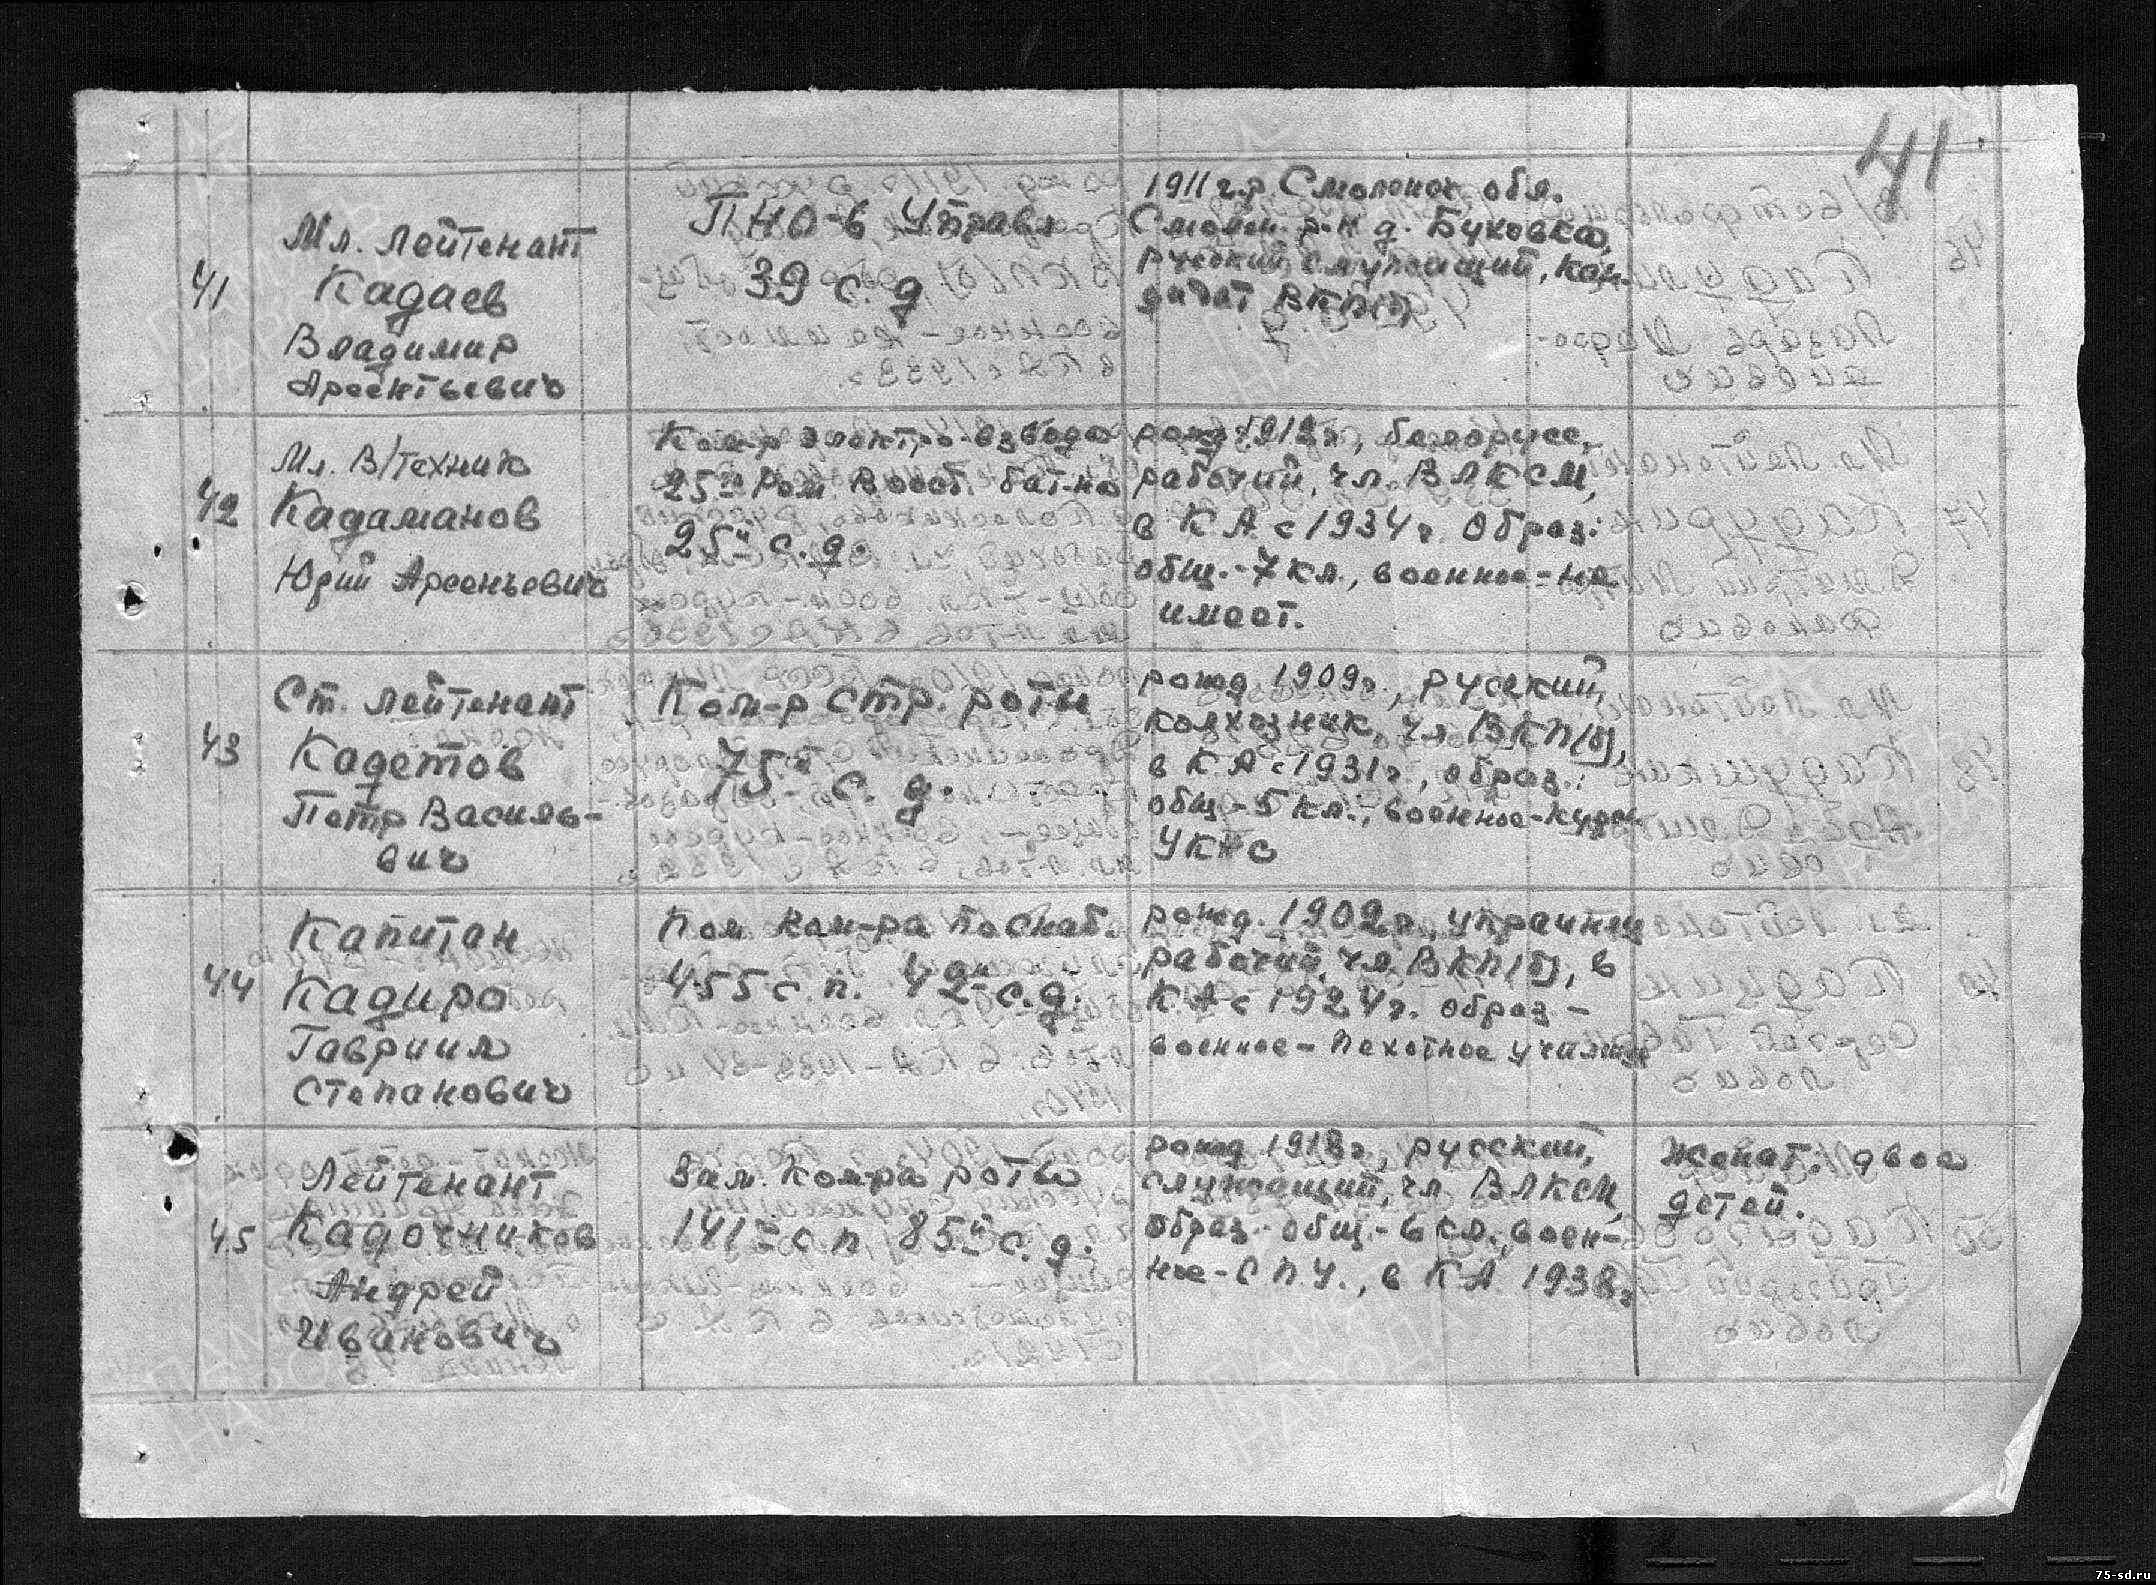 41
41
Мл. лейтенант
Кадаев
Владимир
Арсентьевич
ПНО-в Управл
39 с. д
1911 г.р. Смоленск обл.
Смолен. р-н д. Буковка,
русский, служащий, кан-
дидат ВКП(б)
42
Мл. В/техник
Кадаманов
Юрий Арсеньевич
Ком-р электро-взвода
25й Рем. Восст. бат-на
25й с. д.
рожд 1912 г., белорусс,
рабочий, чл. ВЛКСМ,
в КА с 1934 г. Образ:
общ.-7 кл., военное-не
имеет.
43
Ст. лейтенант
Кадетов
Петр Василь-
вич
Ком-р стр. роты
75й с. д.
рожд 1909 г., русский,
колхозник, чл ВКП(б),
в КА с 1931 г., образ.:
общ-5 кл., военное-курсы
УКНС
44
Капитан
Кадиро
Гавриил
Степанович
Пом ком-ра по снаб.
455 с.п. 42й с.д.
рожд. 1902 г., украинец
рабочий, чл. ВКП(б), в
КА с 1924 г. образ-
военное-Пехотное училище
45
Лейтенант
Кадочников
Андрей
Иванович
Зам. Ком-ра роты
141го с п 85й с. д.
рожд 1918 г., русский,
служащий, чл. ВЛКСМ,
образ-общ.-6 кл., воен-
ное-СПУ., в КА 1938 г
Женат. двое
детей.
ПАМЯТЬ
НАРОДА
75-sd.ru